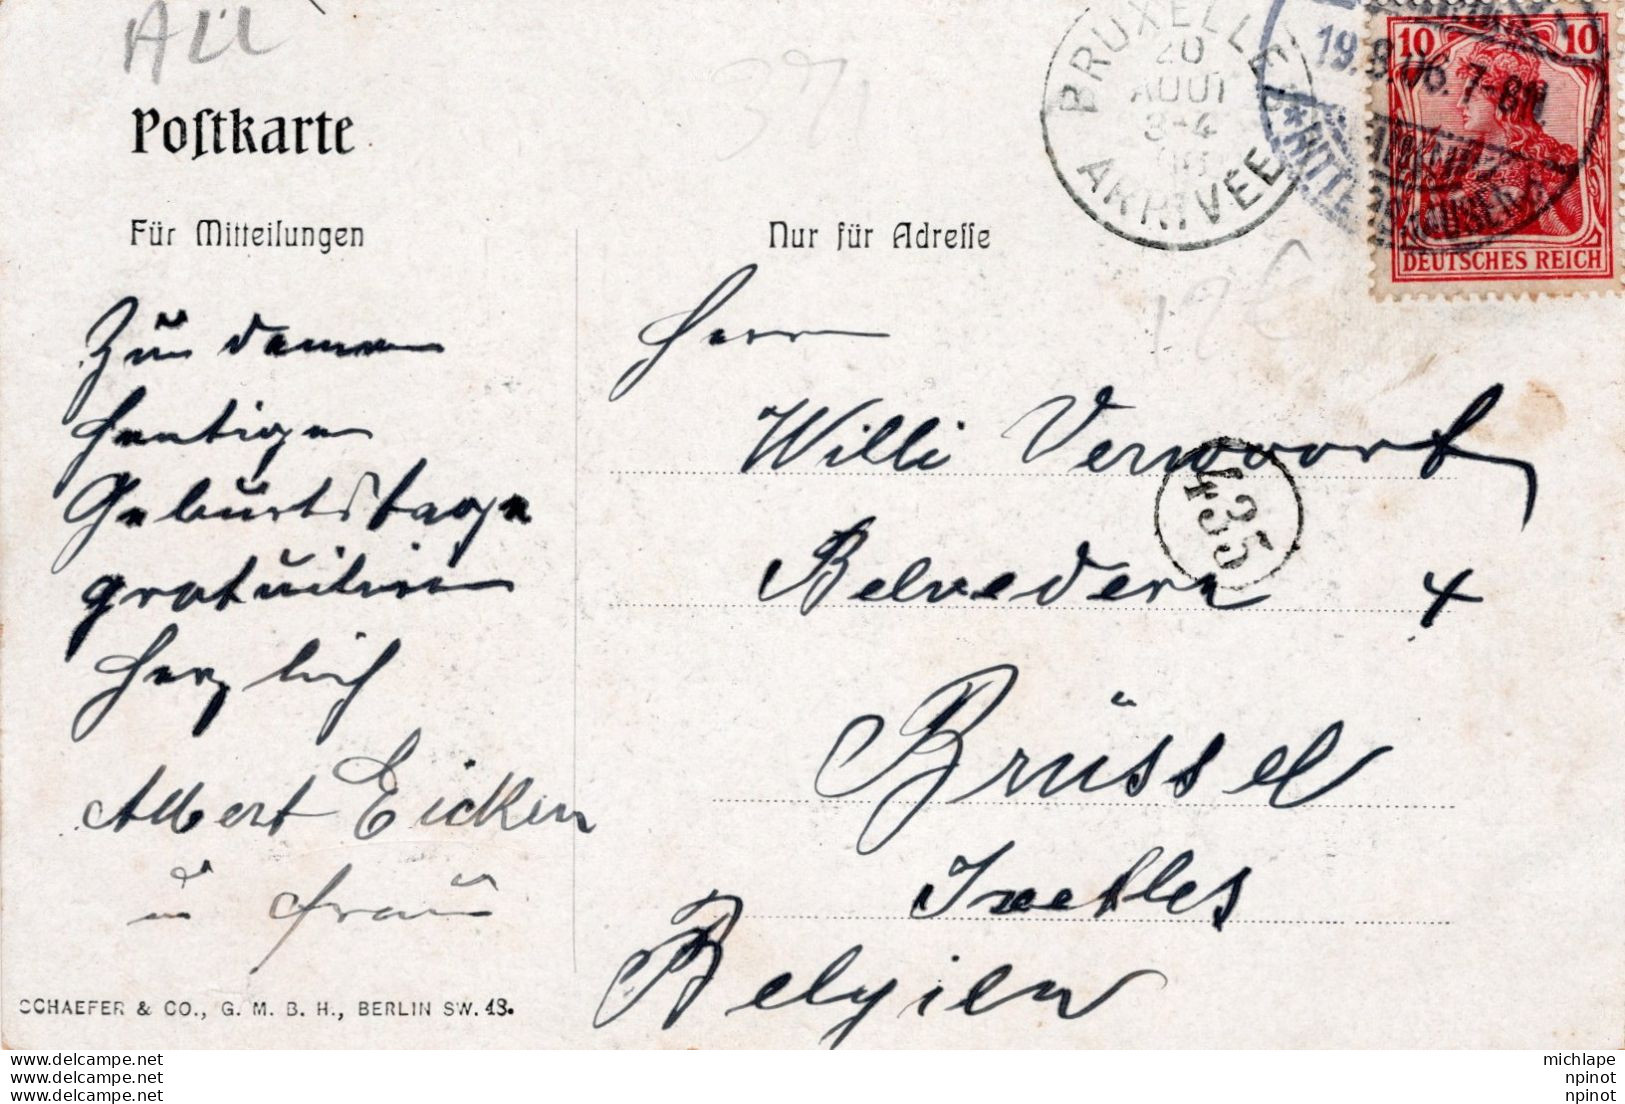 All
Poſtkarte
Für Mitteilungen
Nur für Adreſſe
BRUXELLES
20
AOUT
3-4
ARRIVÉE
19.8.06.7-8N.
10 10
DEUTSCHES REICH
Zu deinem
heutigen
Geburtstage
gratuliren
herzlich
Albert Eicken
u Frau
Herrn
Willi Vervoort
435
Belvedere 4
Brüssel
Ixelles
Belgien
12€
SCHAEFER & CO., G. M. B. H., BERLIN SW. 48.
www.delcampe.net
www.delcampe.net
www.delcampe.net
michlape
npinot
npinot